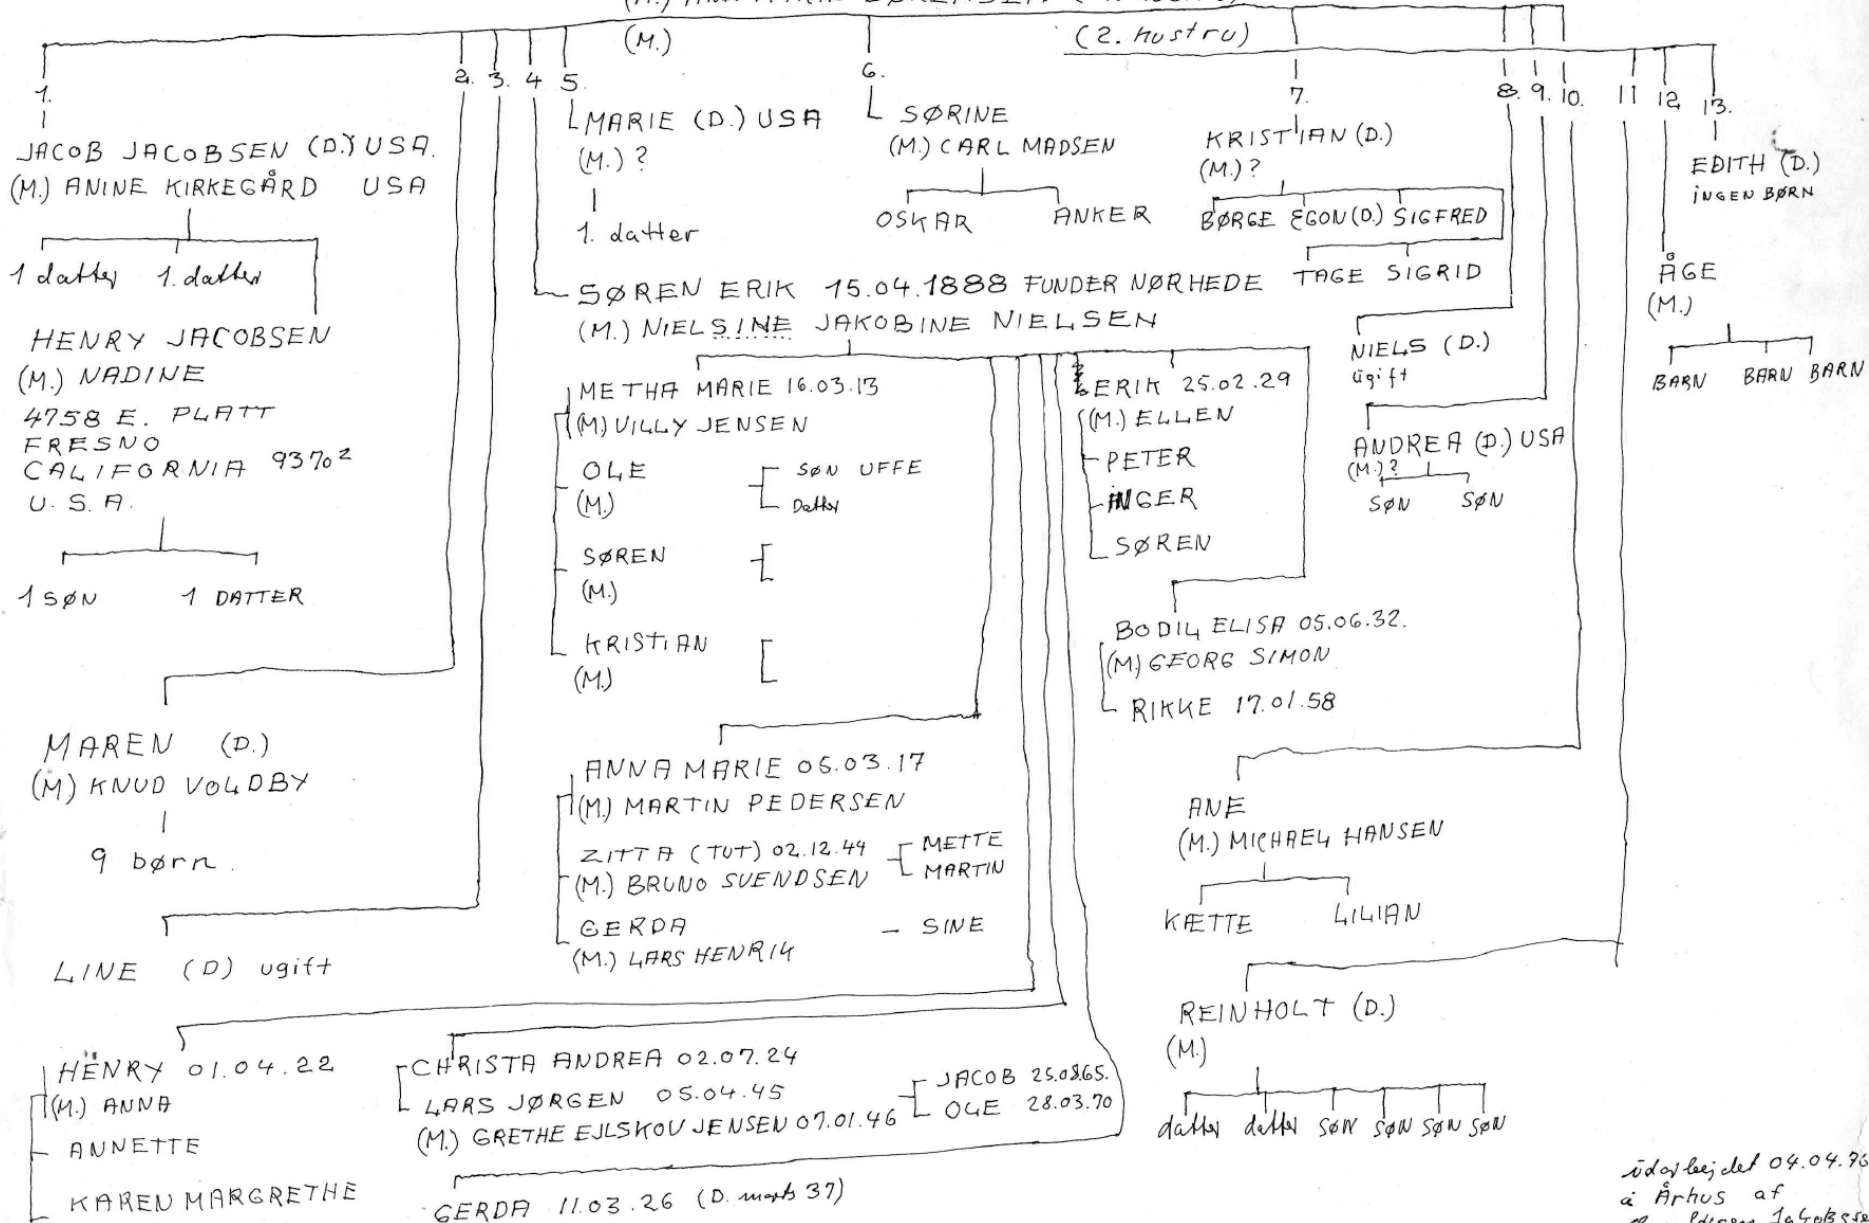 (M.)
(2. hustru)
1.
2. 3. 4 5.
6.
7.
8. 9. 10. 11 12 13.
JACOB JACOBSEN (D.) USA.
(M.) ANINE KIRKEGÅRD USA
1 datter 1. datter
HENRY JACOBSEN
(M.) NADINE
4758 E. PLATT
FRESNO
CALIFORNIA 93702
U.S.A.
1 SØN 1 DATTER
MAREN (D.)
(M) KNUD VOLDBY
9 børn.
LINE (D) ugift
MARIE (D.) USA
(M.) ?
1. datter
SØRINE
(M.) CARL MADSEN
OSKAR ANKER
KRISTIAN (D.)
(M.) ?
BØRGE EGON (D.) SIGFRED
TAGE SIGRID
EDITH (D.)
INGEN BØRN
ÅGE
(M.)
BARN BARN BARN
SØREN ERIK 15.04.1888 FUNDER NØRHEDE
(M.) NIELSINE JAKOBINE NIELSEN
METHA MARIE 16.03.13
(M) VILLY JENSEN
OLE
(M.)
SØN UFFE
Datter
SØREN
(M.)
KRISTIAN
(M.)
ERIK 25.02.29
(M.) ELLEN
PETER
INGER
SØREN
BODIL ELISA 05.06.32.
(M) GEORG SIMON
RIKKE 17.01.58
NIELS (D.)
ugift
ANDREA (D.) USA
(M.) ?
SØN SØN
ANNA MARIE 05.03.17
(M.) MARTIN PEDERSEN
ZITTA (TUT) 02.12.44
(M.) BRUNO SVENDSEN
METTE
MARTIN
GERDA - SINE
(M.) LARS HENRIK
ANE
(M.) MICHAEL HANSEN
KÆTTE LILIAN
REINHOLT (D.)
(M.)
datter datter SØN SØN SØN SØN
HENRY 01.04.22
(M.) ANNA
ANNETTE
KAREN MARGRETHE
CHRISTA ANDREA 02.07.24
LARS JØRGEN 05.04.45
(M.) GRETHE EJLSKOV JENSEN 07.01.46
JACOB 25.08.65.
OLE 28.03.70
GERDA 11.03.26 (D. marts 37)
udarbejdet 04.04.76
i Århus af